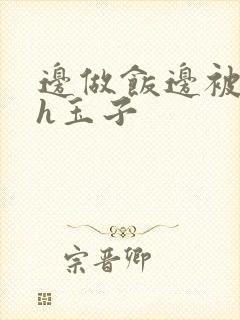 邊做飯邊被
h玉子
宗晉卿